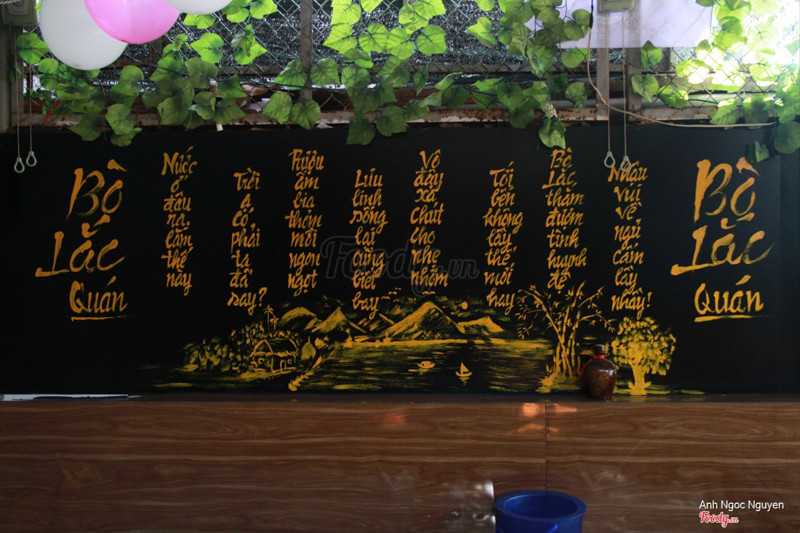 Bộ
Lạc
Quán
Nước ở đâu ra lắm thế này
Trời ạ có phải ta đã say?
Rượu ấm bia thơm mồi ngon ngọt
Lưu linh sống lại cũng biết bay
Vô đây xả chút cho nhẹ nhõm
Tới bến không lầy thế mới hay
Bộ Lạc thắm đượm tình huynh đệ
Nhậu vui về ngủ cấm lầy nhầy!
Bộ
Lạc
Quán
Foody.vn
Anh Ngoc Nguyen
Foody.vn